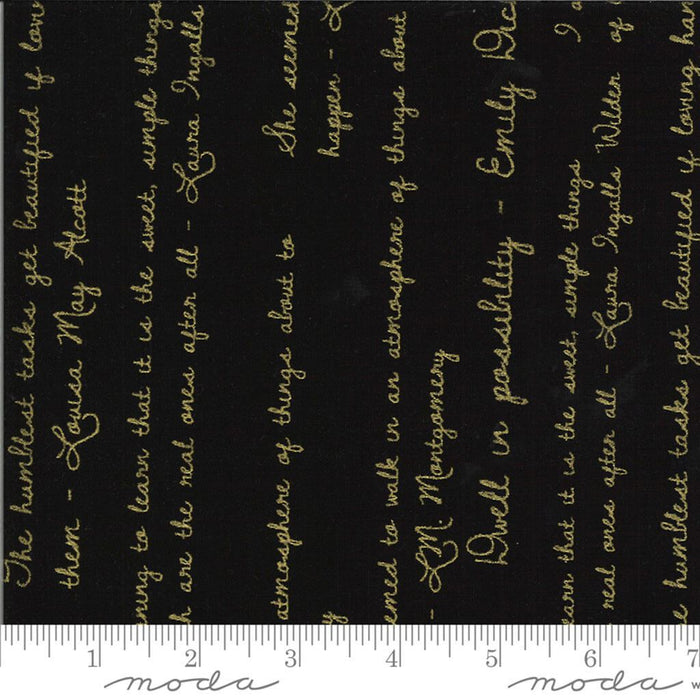 The humblest tasks get beautified if
them - Louisa May Alcott
to learn that it is the sweet, simple things
are the real ones after all - Laura Ingalls
atmosphere of things about to
She seemed
happen -
to walk in an atmosphere of things about
- L.M. Montgomery
Dwell in possibility - Emily
I
that it is the sweet, simple things
real ones after all - Laura Ingalls Wilder of
humblest tasks get beautified if loving
1 2 3 4 5 6 7
moda moda